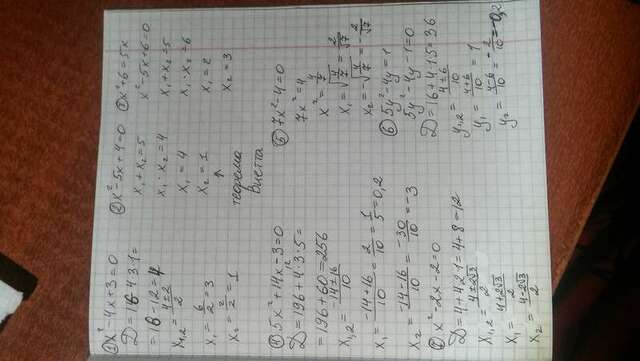 ① x² - 4x + 3 = 0
D = 16 - 4·3·1 =
= 16 - 12 = 4
x₁,₂ = (4±2)/2
x₁ = 6/2 = 3
x₂ = 2/2 = 1
② x² - 5x + 4 = 0
x₁ + x₂ = 5
x₁ · x₂ = 4
x₁ = 4
x₂ = 1
↑
теорема
Виетта
③ x² + 6 = 5x
x² - 5x + 6 = 0
x₁ + x₂ = 5
x₁ · x₂ = 6
x₁ = 2
x₂ = 3
④ 5x² + 14x - 3 = 0
D = 196 + 4·3·5 =
12
= 196 + 60 = 256
x₁,₂ = (-14±16)/10
x₁ = (-14+16)/10 = 2/10 = 1/5 = 0,2
x₂ = (-14-16)/10 = -30/10 = -3
⑤ 7x² - 4 = 0
7x² = 4
x² = 4/7
x₁ = √(4/7) = 2/√7
x₂ = -√(4/7) = -2/√7
⑥ 5y² - 4y = 1
5y² - 4y - 1 = 0
D = 16 + 4·1·5 = 36
y₁,₂ = (4±6)/10
y₁ = (4+6)/10 = 1
y₂ = (4-6)/10 = -2/10 = -0,2
x² - 2x - 2 = 0
D = 4 + 4·2·1 = 4 + 8 = 12
x₁,₂ = (4±2√3)/2
x₁ = (4+2√3)/2
x₂ = (4-2√3)/2